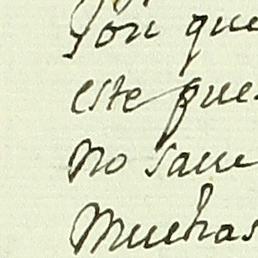 Son que
este pue
no saue
Muchas